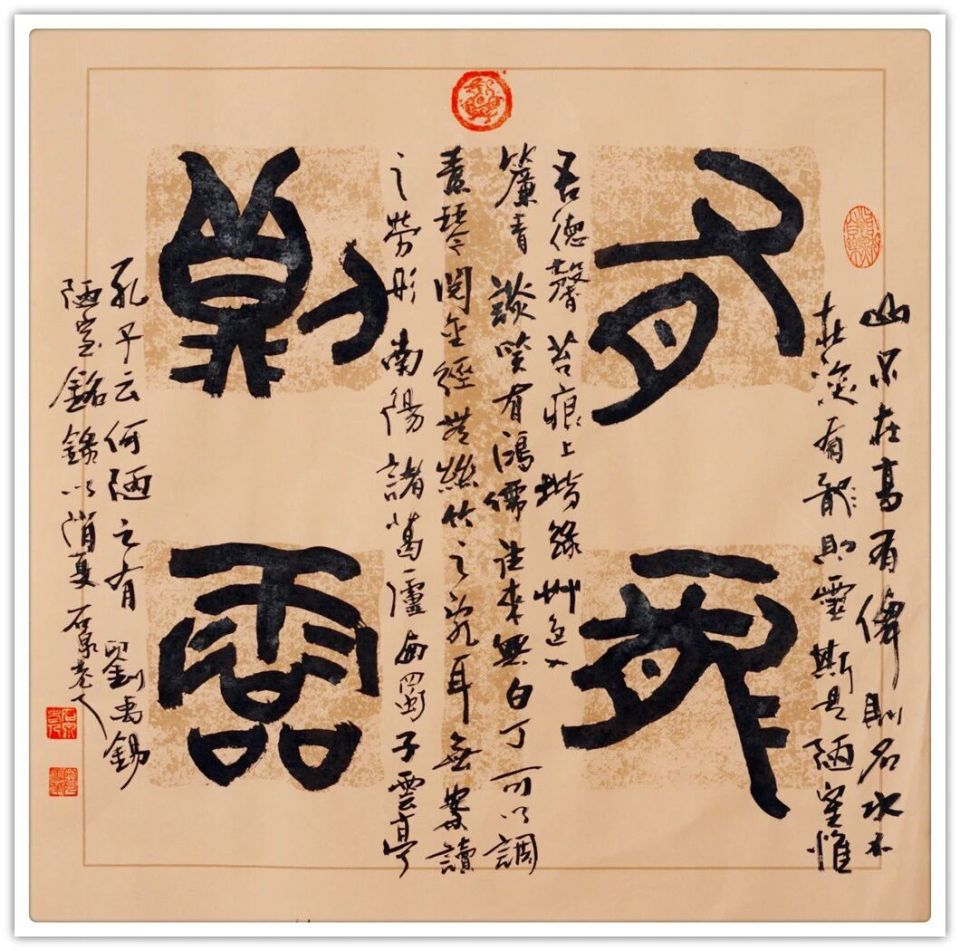 有龍則靈
山不在高有僊則名水不
在深有龍則靈斯是陋室惟
吾德馨苔痕上階綠艸色入
簾青談笑有鴻儒往來無白丁可以調
素琴閱金經無絲竹之亂耳無案讀
之勞形南陽諸葛廬西蜀子雲亭
孔子云何陋之有劉禹錫
陋室銘錄以消夏